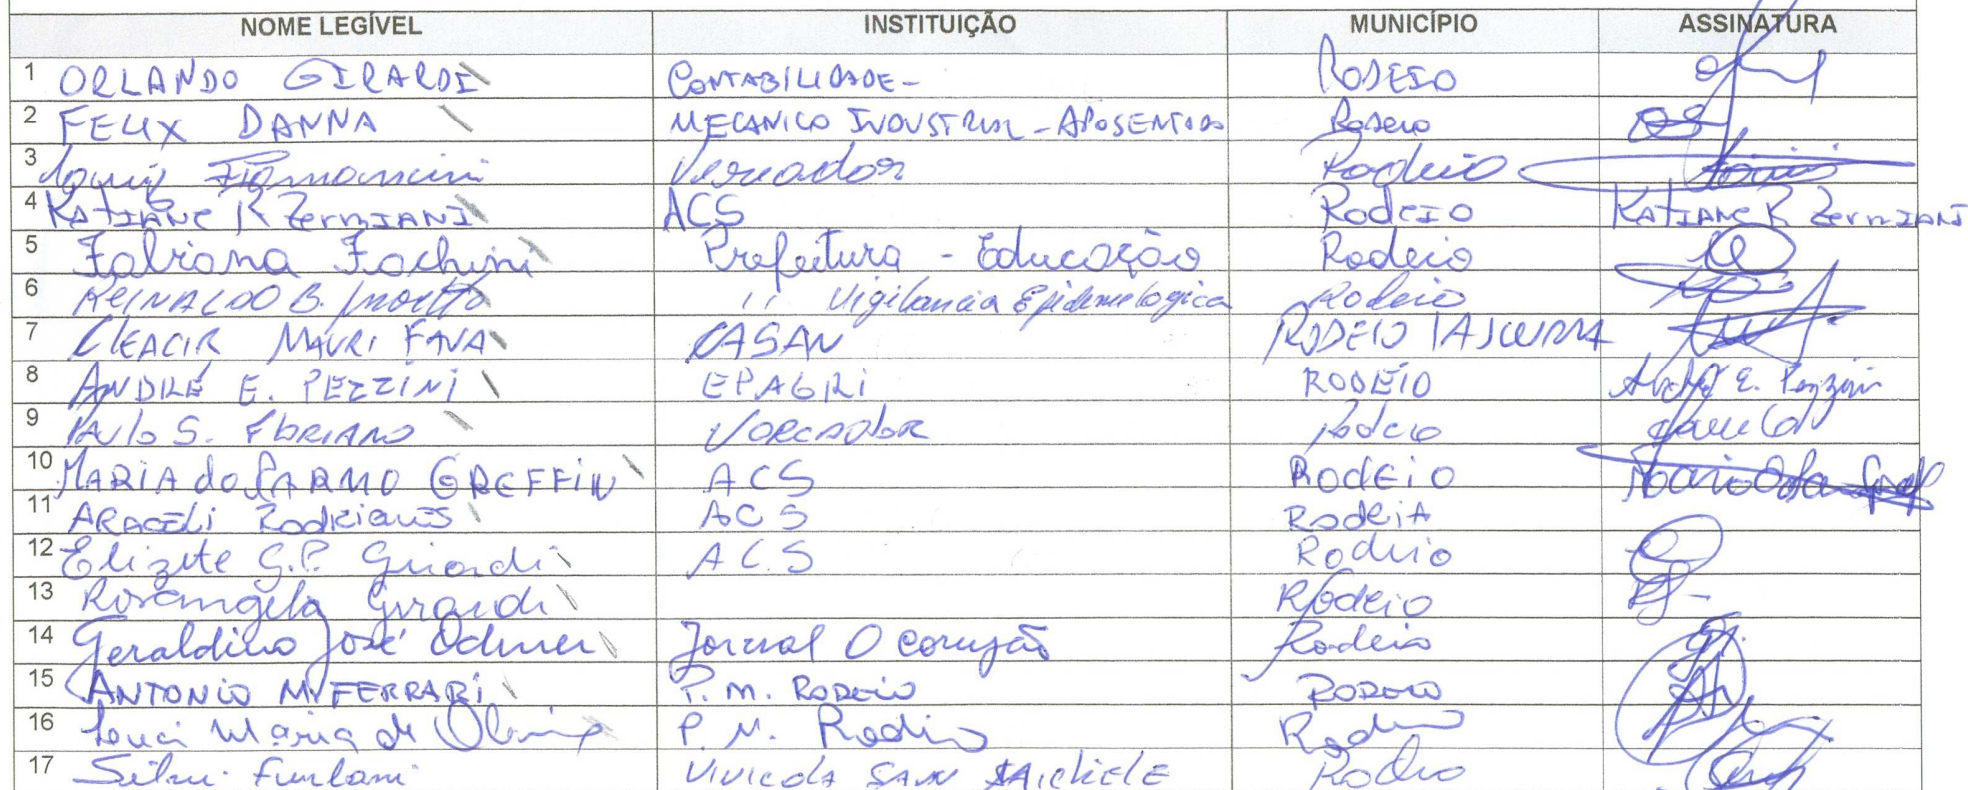 NOME LEGÍVEL INSTITUIÇÃO MUNICÍPIO ASSINATURA
1 ORLANDO GIRARDI CONTABILIDADE - RODEIO
2 FELIX DANNA MECANICO INDUSTRIAL - APOSENTADO Rodeio
3 Fiamoncini Vereador Rodeio
4 KATIANE R ZermIANI ACS RodEIO KATIANE R ZermIANI
5 Fabiana Fachini Prefeitura - Educação Rodeio
6 REINALDO B. '' Vigilancia Epidemologica Rodeio
7 CLEACIR MAURI FAVA CASAN RODEIO /ASCURRA
8 ANDRÉ E. PEZZINI EPAGRI RODEIO André E. Pezzini
9 PAULO S. FLORIANO VEREADOR Rodeio
10 MARIA do CARMO GREFFIN ACS RODEiO
11 ARACELI RODRIGUES ACS RodeiA
12 Elizete G.P. Girardi ACS Rodeio
13 Rosangela Girardi Rodeio
14 Geraldino José Jornal O corujão Rodeio
15 ANTONIO M. FERRARI P. M. RODEIO RODEIO
16 Maria de P. M. Rodeio Rodeio
17 Furlani VINICOLA SAN MICHELE Rodeio